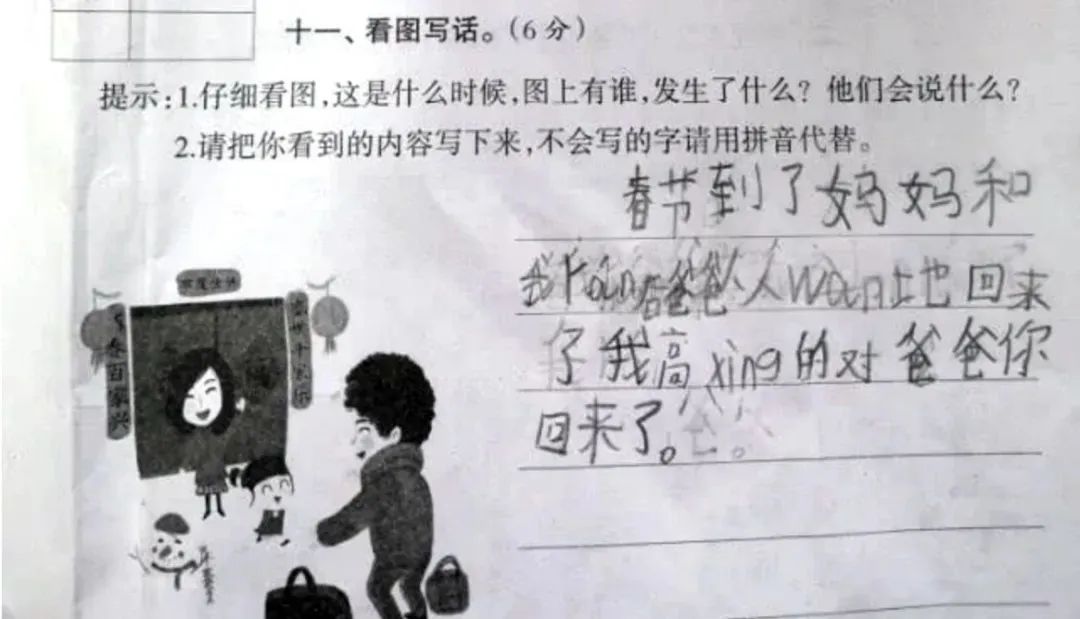 十一、看图写话。(6分)
提示:1.仔细看图,这是什么时候,图上有谁,发生了什么?他们会说什么?
2.请把你看到的内容写下来,不会写的字请用拼音代替。
春节到了妈妈和
我 爸爸从 上也回来
了我高xing的对爸爸你
回来了。
百家兴